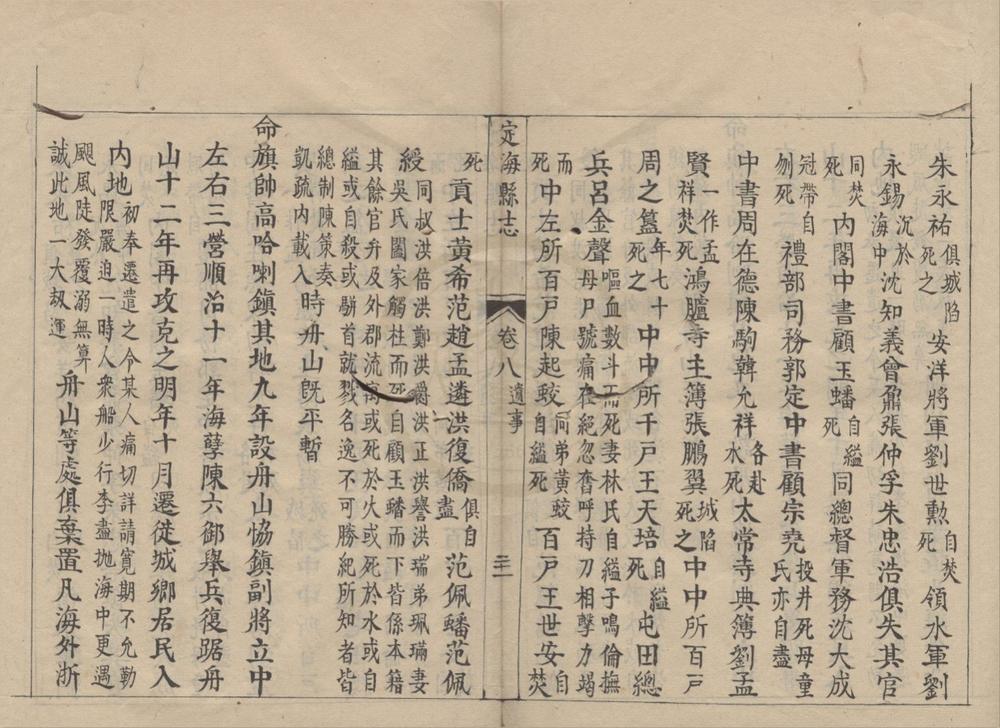 朱永祐俱城陷死之安洋將軍劉世勲自焚死領水軍劉
永錫沉於海中沈知義曾鼐張仲孚朱忠浩俱失其官
同焚死內閣中書顧玉蟠自縊死同總督軍務沈大成
冠帶自刎死禮部司務郭定中書顧宗堯投井死母童氏亦自盡
中書周在德陳駒韓允祥各赴水死太常寺典簿劉孟
賢一作孟祥焚死鴻臚寺主簿張鵬翼城陷死之中中所百戶
周之簋年七十死之中中所千戶王天培自縊死屯田總
兵呂金聲嘔血數斗而死妻林氏自縊子鳴倫撫母尸號痛在絕忽奮呼持刀相擊力竭
而死中左所百戶陳起蛟自縊死同弟黃蛟百戶王世安自焚
定海縣志
卷八
遺事
三二
死貢士黃希范趙孟遴洪復僑俱自盡范佩蟠范佩
綬同叔洪倍洪鄭洪爵洪正洪譽洪瑞弟珮璊妻吳氏闔家觸柱而死自顧玉蟠而下皆係本籍
其餘官弁及外郡流寓或死於火或死於水或自縊或自殺或駢首就戮名逸不可勝紀所知者皆
總制陳策奏凱疏內載入時舟山旣平暫
命旗帥高哈喇鎮其地九年設舟山恊鎮副將立中
左右三營順治十一年海孽陳六御舉兵復踞舟
山十二年再攻克之明年十月遷徙城鄉居民入
內地初奉遷遣之令某人痛切詳請寬期不允勤限嚴迫一時人衆船少行李盡抛海中更遇
颶風陡發覆溺無算誠此地一大刼運舟山等處俱棄置凡海外浙